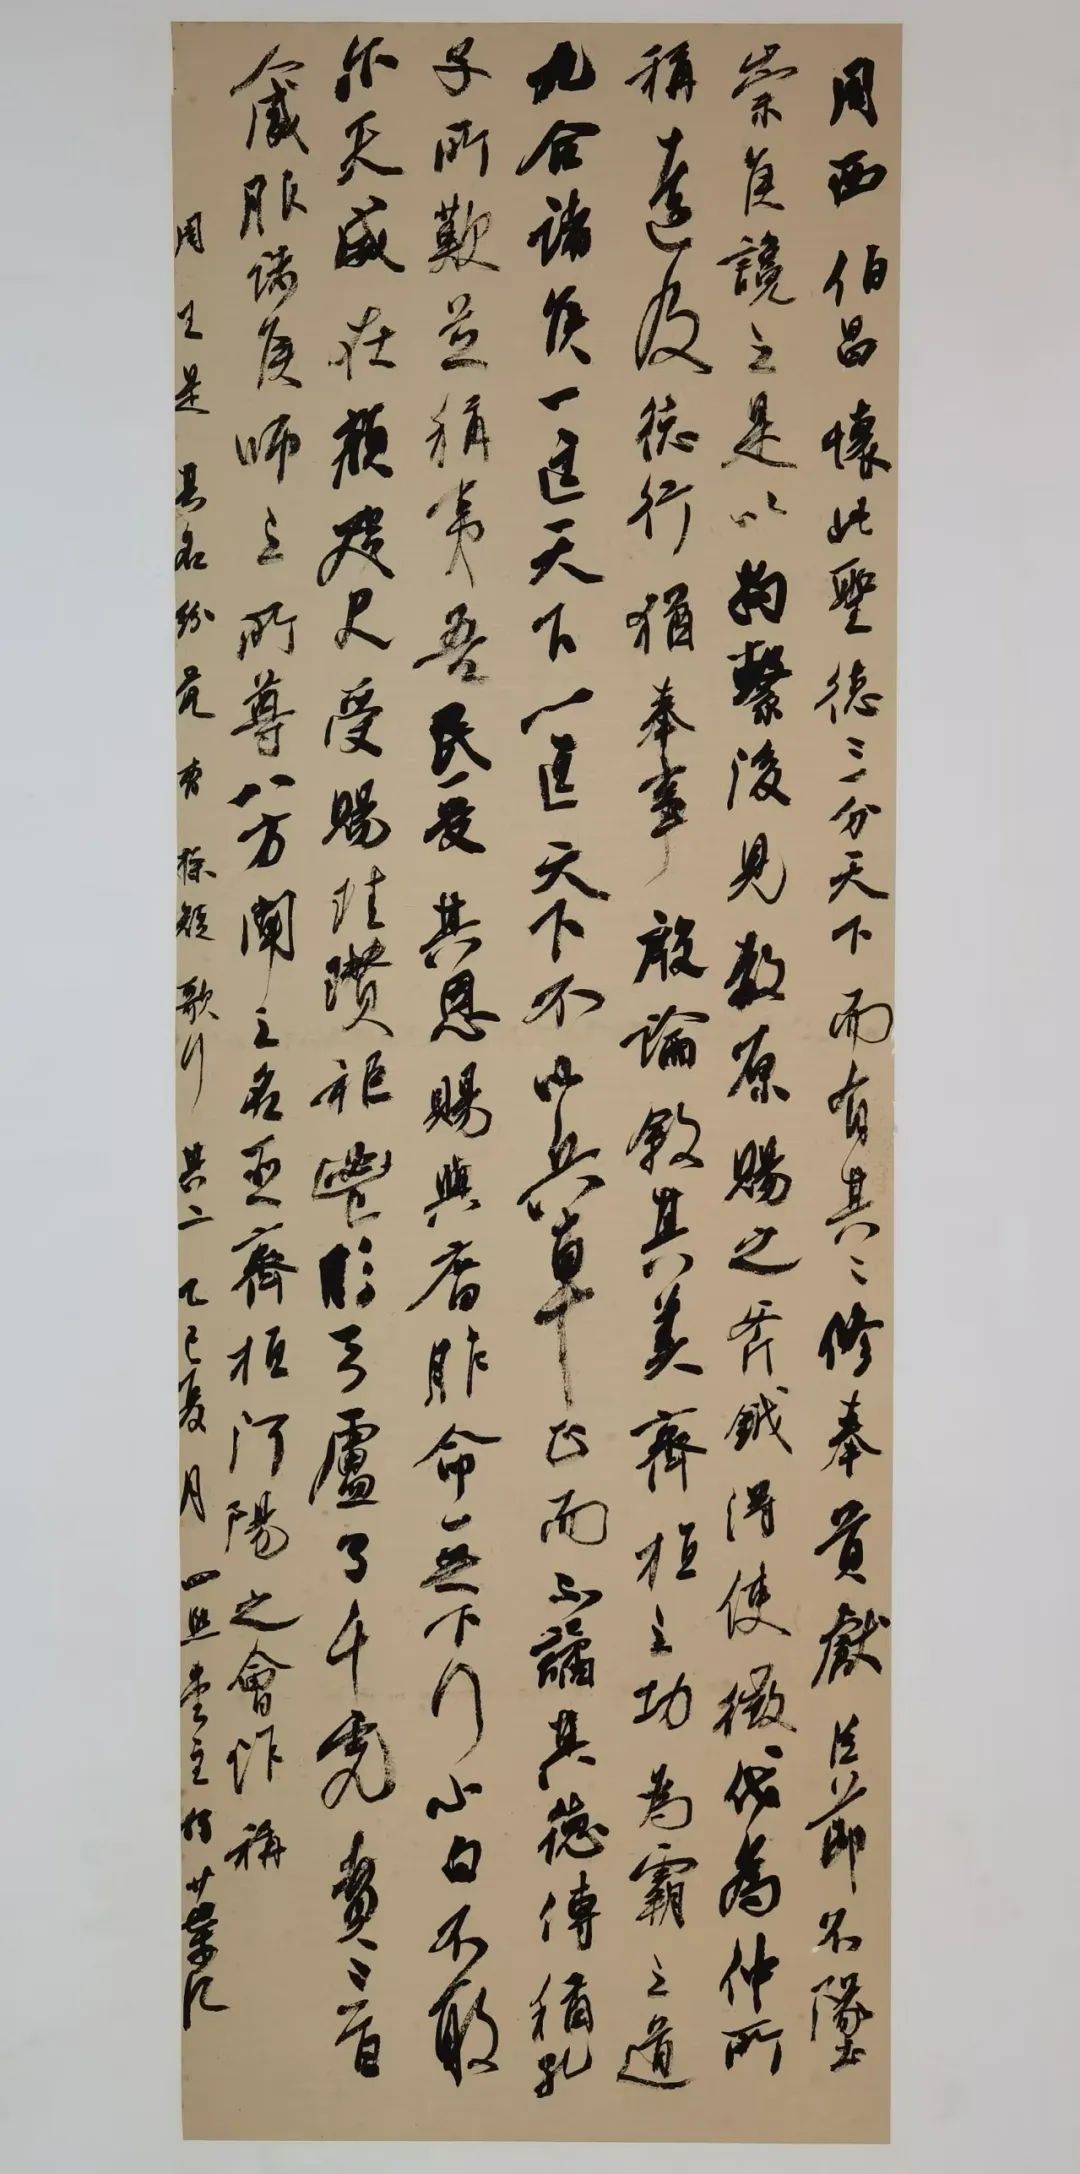 周西伯昌懷此聖德三分天下而有其二修奉貢獻臣節不墜
崇侯讒之是以拘繫後見赦原賜之斧鉞得使徵伐為仲所
稱達及德行猶奉事殷論敘其美齊桓之功為霸之道
九合諸侯一匡天下一匡天下不以兵車正而不譎其德傳稱孔
子所歎並稱夷吾民受其恩賜與廟胙命無下拜小白不敢
尔天威在顏咫尺受賜珪瓚秬鬯彤弓盧弓千虎賁三百
人威服諸侯師之所尊八方聞之名亞齊桓河陽之會詐稱
周王是其名紛葩 曹操短歌行 其二 乙巳夏月 堂主